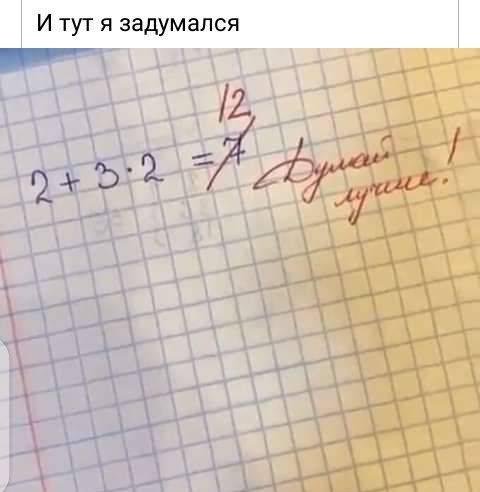 И тут я задумался
12
2 + 3 · 2 = 7
Думай
лучше!